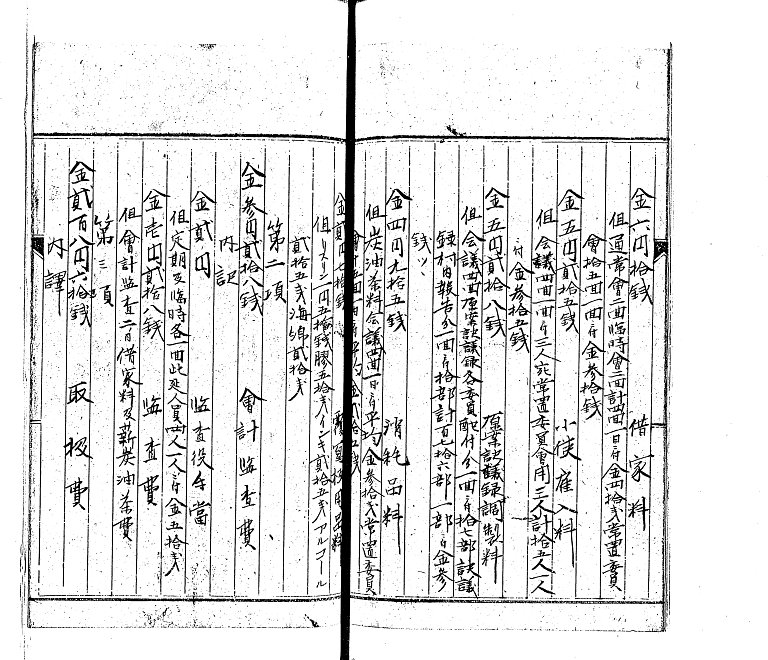 金六円拾銭 借家料
但通常會二回臨時會二回計四回一日ニ付金四拾銭常置委員
會拾五回一回ニ付金参拾銭
金五円貳拾五銭 小使雇入料
但会議四回一回ニ付三人宛常置委員會用三人計拾五人一人
ニ付金参拾五銭
金五円貳拾八銭 原案決議録調製料
但会議四回原案決議録各委員配付分一回ニ付拾七部決議
録村内報告分一回ニ付拾部計百七拾六部一部ニ付金参
銭ツヽ
金四円九拾五銭 消耗品料
但炭油茶料会議四回一日ニ付平均金参拾銭常置委員
會拾五回一回ニ付平均金貳拾五銭
金貳円七拾銭
但リスリン一円五拾銭膠五拾銭インキ貳拾五銭アルコール
貳拾五銭海綿貳拾銭
第二項
金参円貳拾八銭 會計監査費
内訳
金貳円 監査役手當
但定期及臨時各一回此延人員四人一人ニ付金五拾銭
金壱円貳拾八銭 監査費
但會計監査二日借家料及薪炭油茶費
第三項
金貳百八円六拾銭 取扱費
内譯